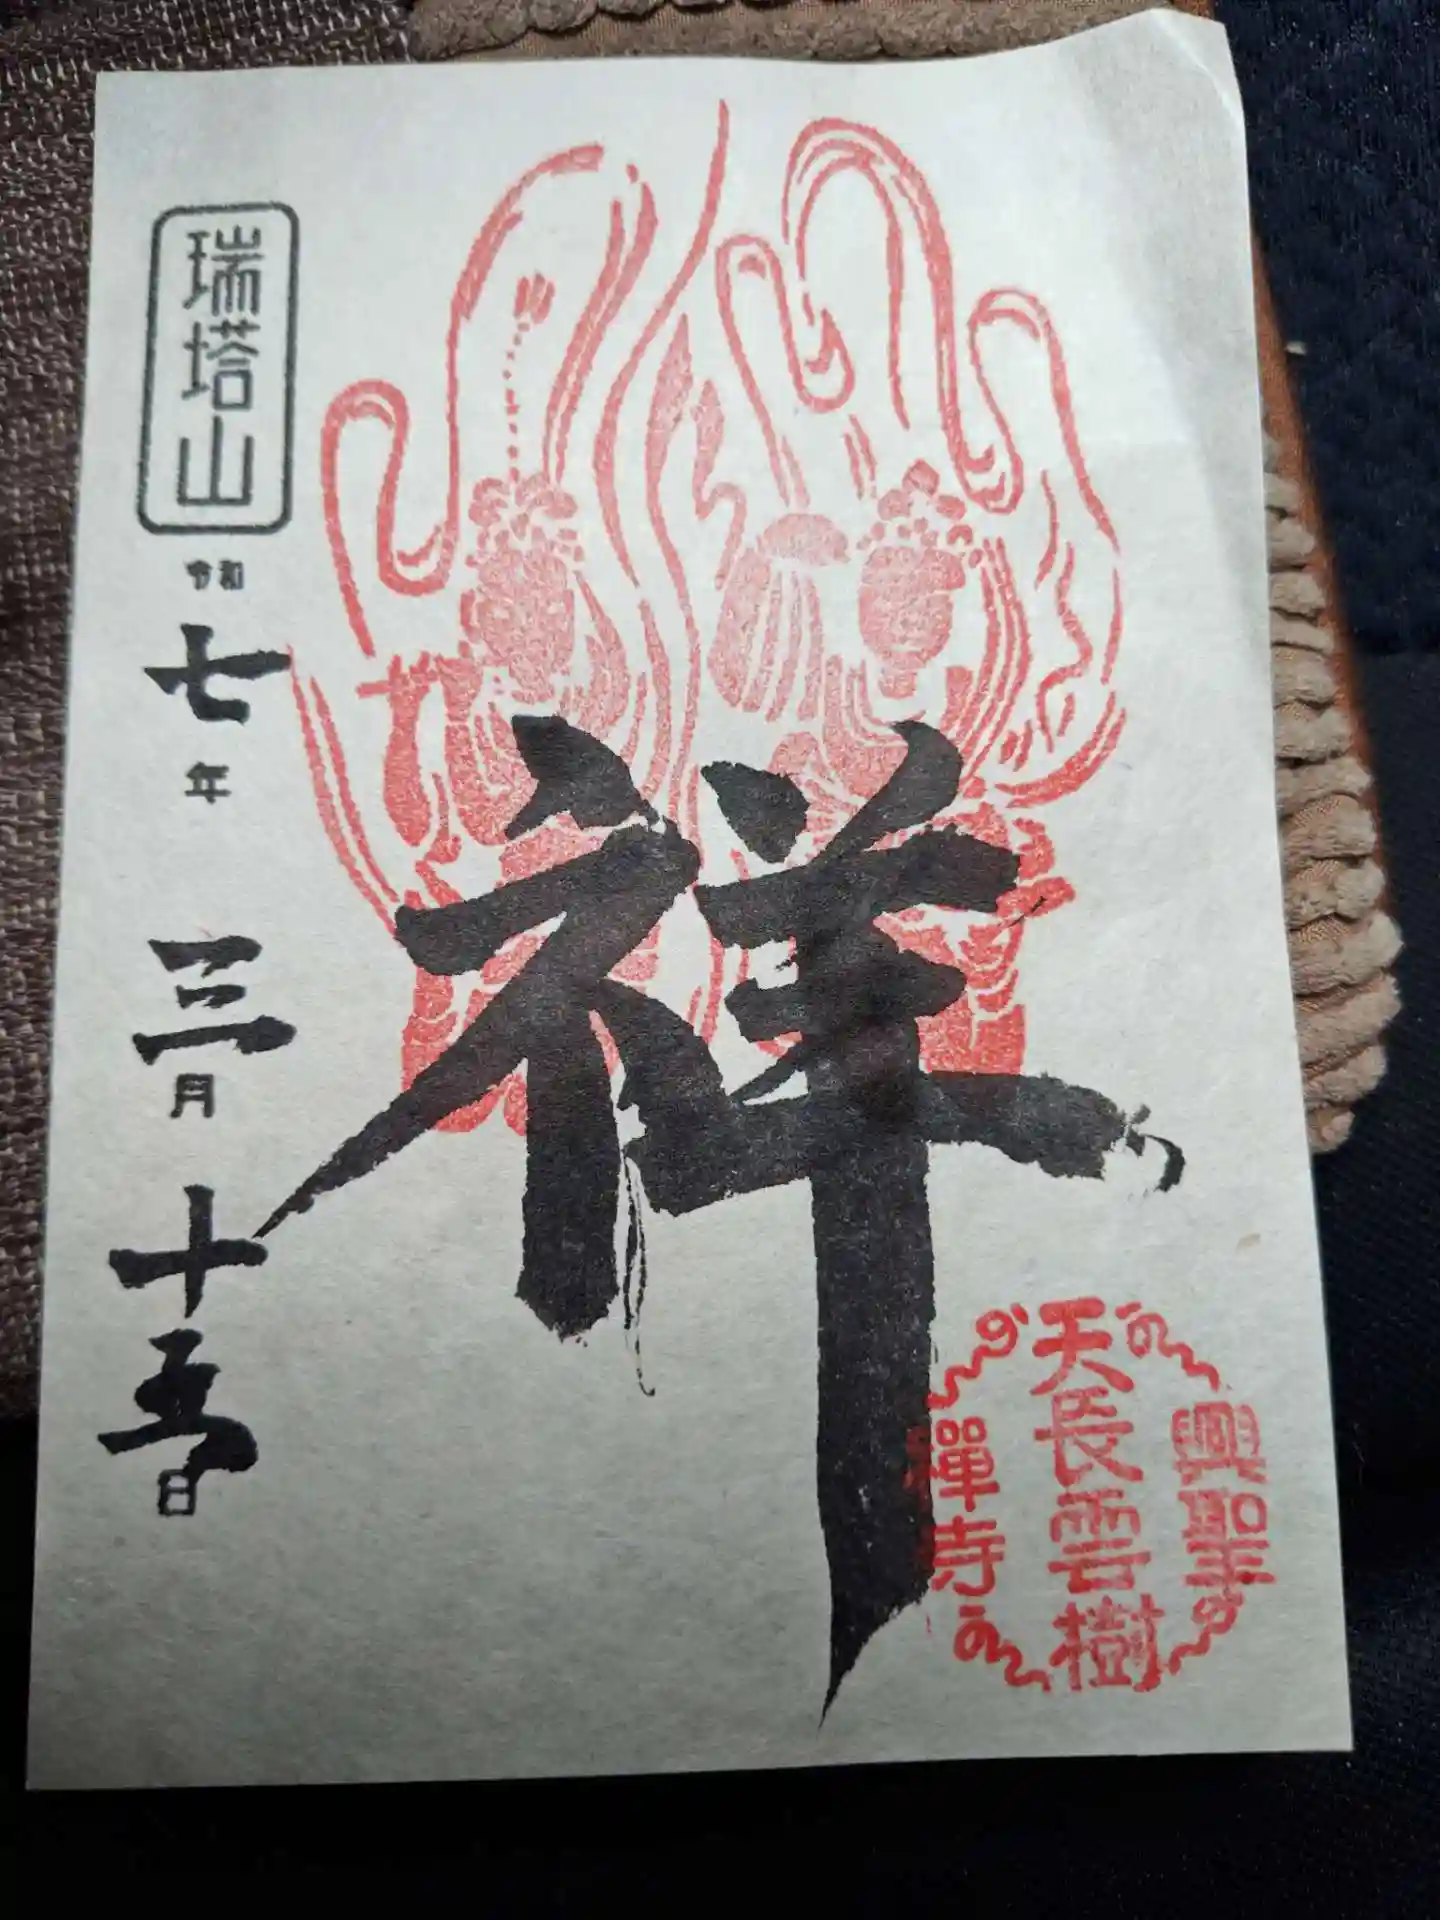 興聖
天長雲樹
禅寺
祥
瑞塔山
令和
七年
三月
十五日